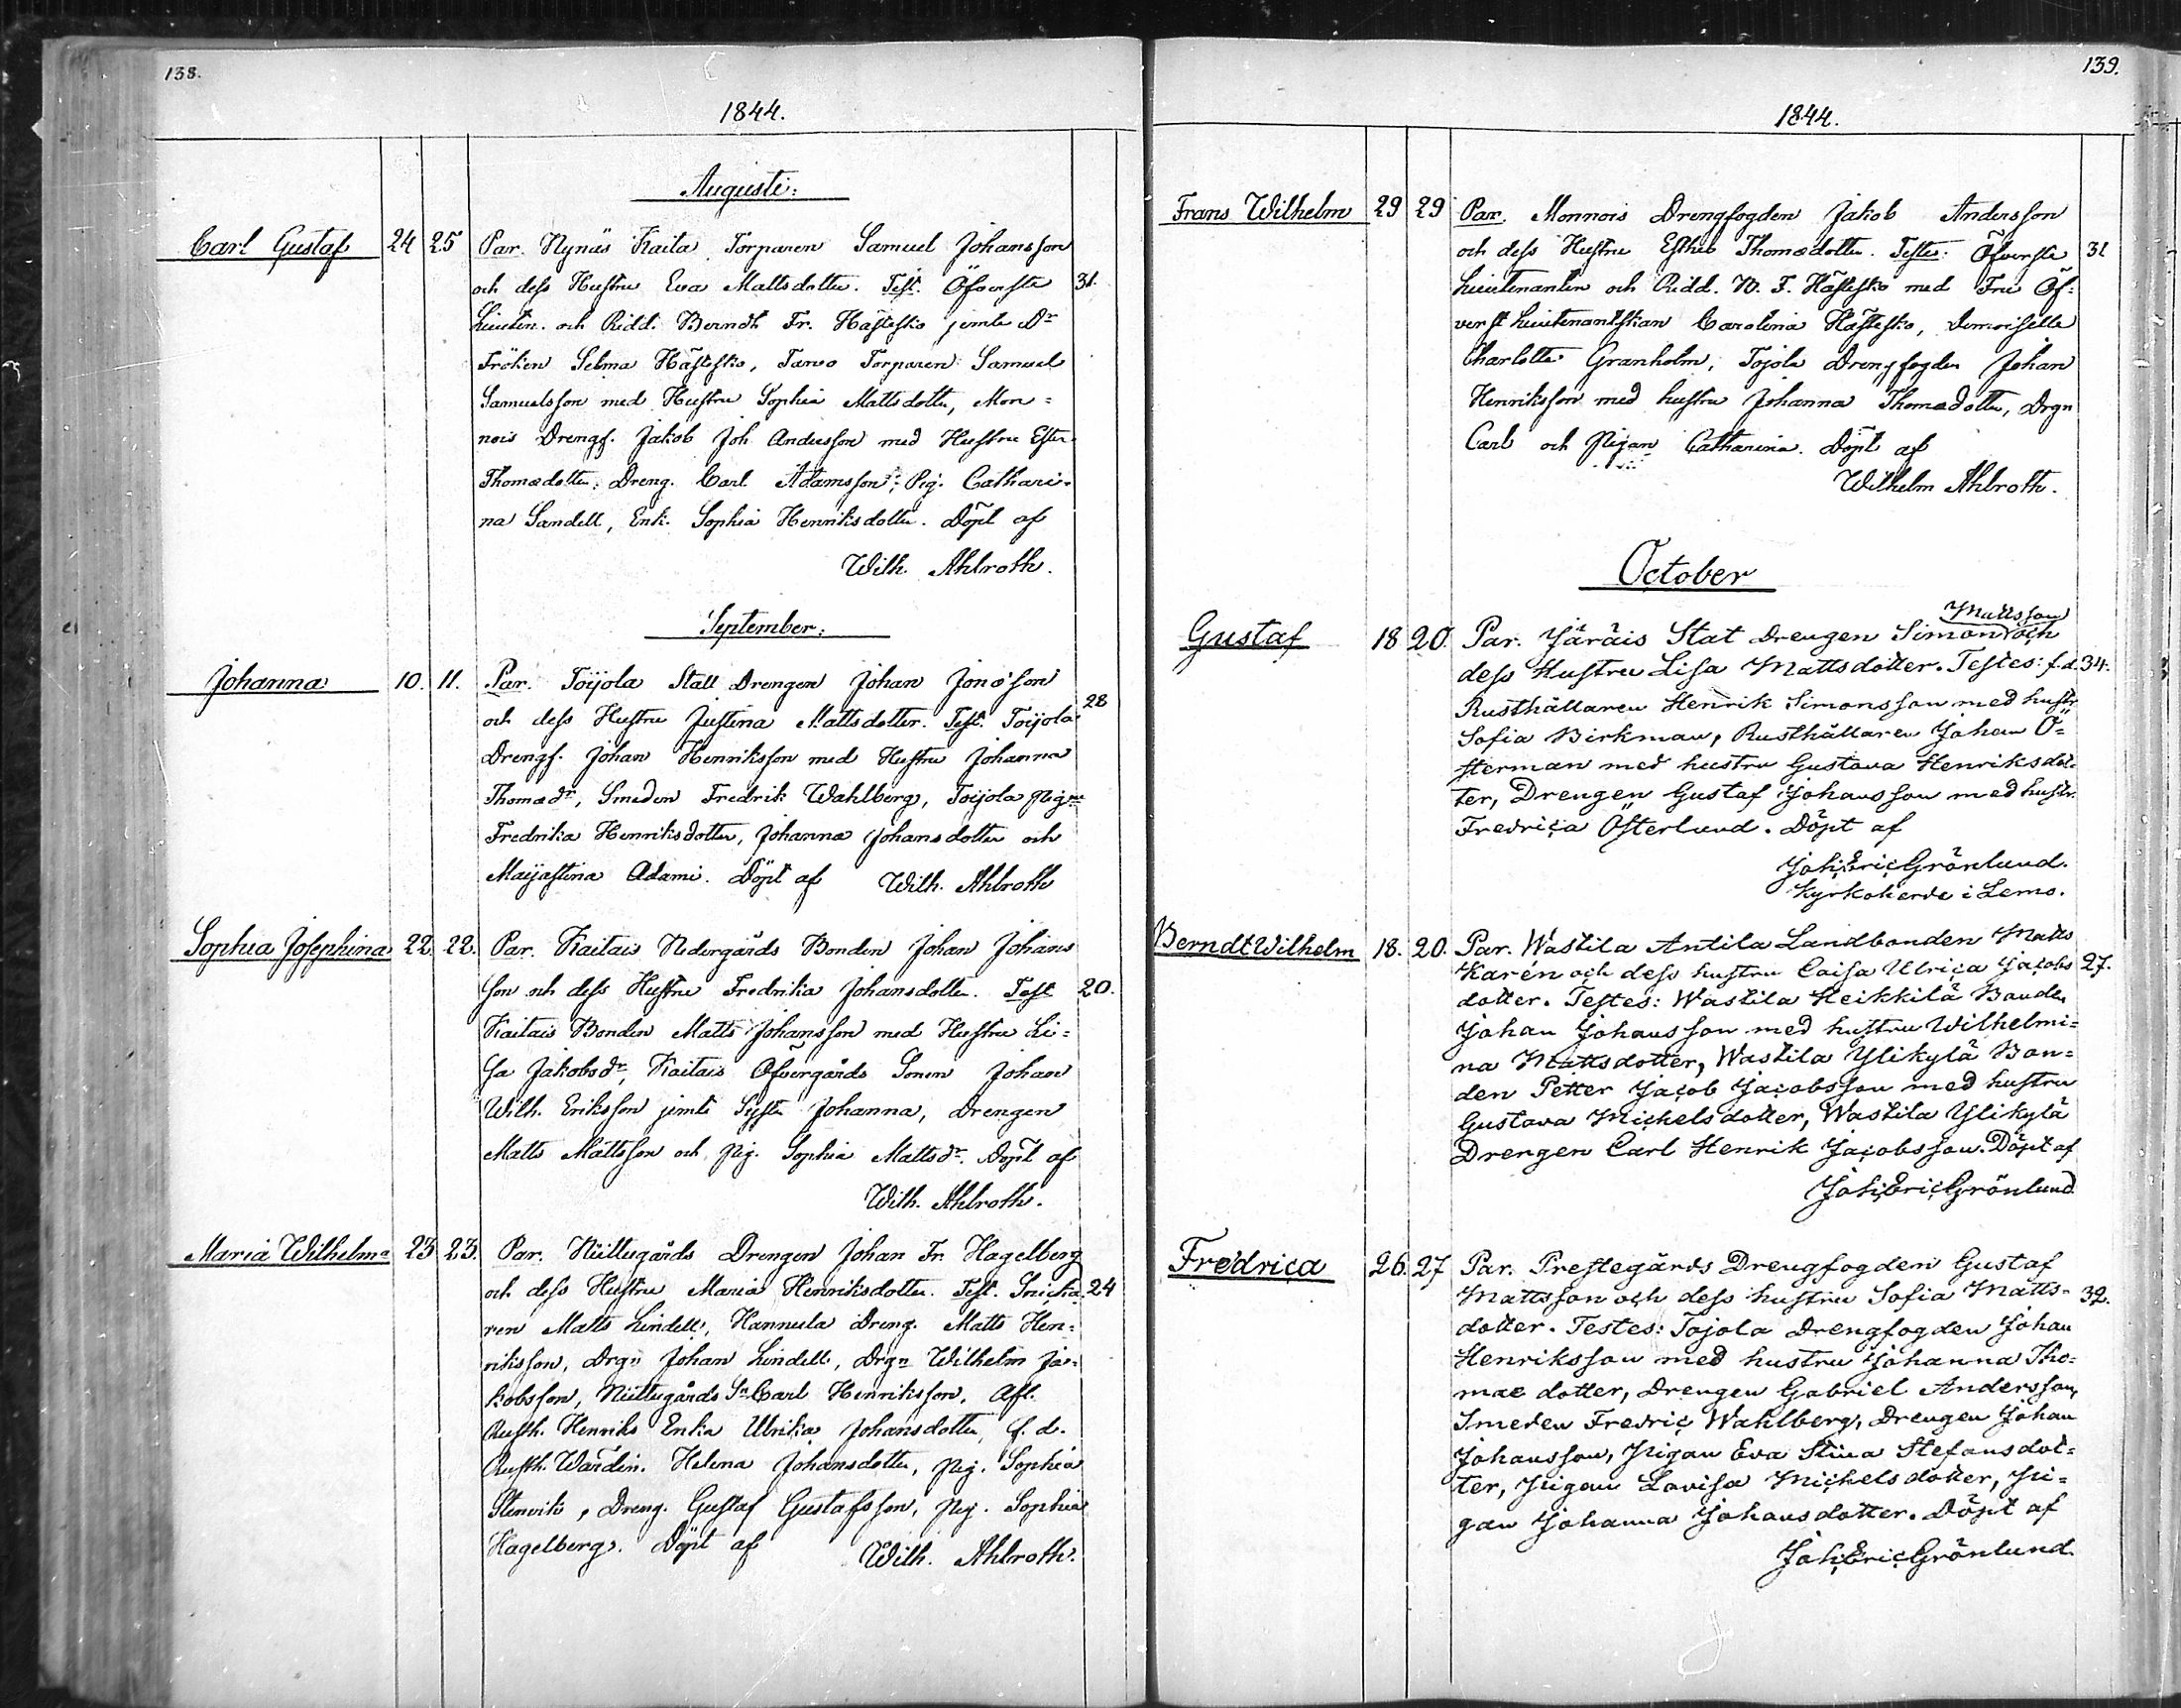 138.
1844.
Augusti:
Carl Gustaf 24 25 Par. Nynäs Kaita Torparen Samuel Johansson
och dess Hustru Eva Mattsdotter. Test. Öfverste 31.
Lieuten. och Ridd. Berndt Fr. Hästesko jemte Dr
Fröken Selma Hästesko, Tarvo Torparen Samuel
Samuelsson med Hustru Sophia Mattsdotter, Mon=
nois Drengf. Jakob Joh. Andersson med Hustru Ester
Thomædotter, Dreng. Carl Adamsson, Pig. Cathari-
na Sandell, Enk. Sophia Henriksdotter. Döpt af
Wilh. Ahlroth.
September:
Johanna 10. 11. Par. Toijola Stall Drengen Johan Jonæson
och dess Hustru Justina Mattsdotter. Test. Toijola 28
Drengf. Johan Henriksson med Hustru Johanna
Thomædr, Smeden Fredrik Wahlberg, Toijola
Fredrika Henriksdotter, Johanna Johansdotter och
Majastina Adami. Döpt af Wilh. Ahlroth
Sophia Josephina 22. 22. Par. Kaitais Nedergårds Bonden Johan Johans
son och dess Hustru Fredrika Johansdotter. Test 20.
Kaitais Bonden Matts Johansson med Hustru Li=
sa Jakobsdr, Kaitais Öfvergårds Sonen Johan
Wilh. Eriksson jemte Syster Johanna, Drengen
Matts Mattsson och Pig. Sophia Mattsdr. Döpt af
Wilh. Ahlroth.
Maria Wilhelma 23 23. Par. Niittugårds Drengen Johan Fr. Hagelberg
och dess Hustru Maria Henriksdotter. Test. Snicka 24
ren Matts Lindell, Hannula Dreng. Matts Hen=
riksson, Drgn Johan Lindell, Drgn Wilhelm Ja=
kobsson, Niittugårds Sn Carl Henriksson, Afl.
Rusth. Henriks Enka Ulrika Johansdotter, f. d.
Rusth. Wärdin. Helena Johansdotter, Pig. Sophia
Stenvik, Dreng. Gustaf Gustafsson, Pig. Sophia
Hagelberg. Döpt af Wilh. Ahlroth.
139.
1844.
Frans Wilhelm 29 29 Par. Monnois Drengfogden Jakob Andersson
och dess Hustru Esther Thomædotter. Testes: Öfverste 31
Lieutenanten och Ridd. B. F. Hästesko med Fru Öf=
verst Lieutenantskan Carolina Hästesko, Demoiselle
Charlotte Granholm, Tojola Drengfogden Johan
Henriksson med hustru Johanna Thomædotter, Drgn
Carl och Pigan Catharina. Döpt af
Wilhelm Ahlroth.
October
Mattsson
Gustaf 18 20. Par. Järäis Stat Drengen Simon och
dess Hustru Lisa Mattsdotter. Testes: f.d. 34.
Rusthållaren Henrik Simonsson med hustr
Sofia Birkman, Rusthållaren Johan Ö=
sterman med hustru Gustava Henriksdot-
ter, Drengen Gustaf Johansson med hustr.
Fredrica Österlund. Döpt af
Joh. Eric Grönlund.
Kyrkoherde i Lemo.
Berndt Wilhelm 18. 20. Par. Wastila Antila Landbonden Matts
Karén och dess hustru Caisa Ulrica Jacobs 27.
dotter. Testes: Wastila Heikkilä Bonden
Johan Johansson med hustru Wilhelmi=
na Mattsdotter, Wastila Ylikylä Bon=
den Petter Jacob Jacobsson med hustru
Gustava Michelsdotter, Wastila Ylikylä
Drengen Carl Henrik Jacobsson. Döpt af
Joh. Eric Grönlund
Fredrica 26. 27 Par. Prestegårds Drengfogden Gustaf
Mattsson och dess hustru Sofia Matts- 32.
dotter. Testes: Tojola Drengfogden Johan
Henriksson med hustru Johanna Tho=
mae dotter, Drengen Gabriel Andersson,
Smeden Fredric Wahlberg, Drengen Johan
Johansson, Pigan Eva Stina Stefansdot=
ter, Pigan Lovisa Michelsdotter, Pi=
gan Johanna Johansdotter. Döpt af
Joh. Eric Grönlund.